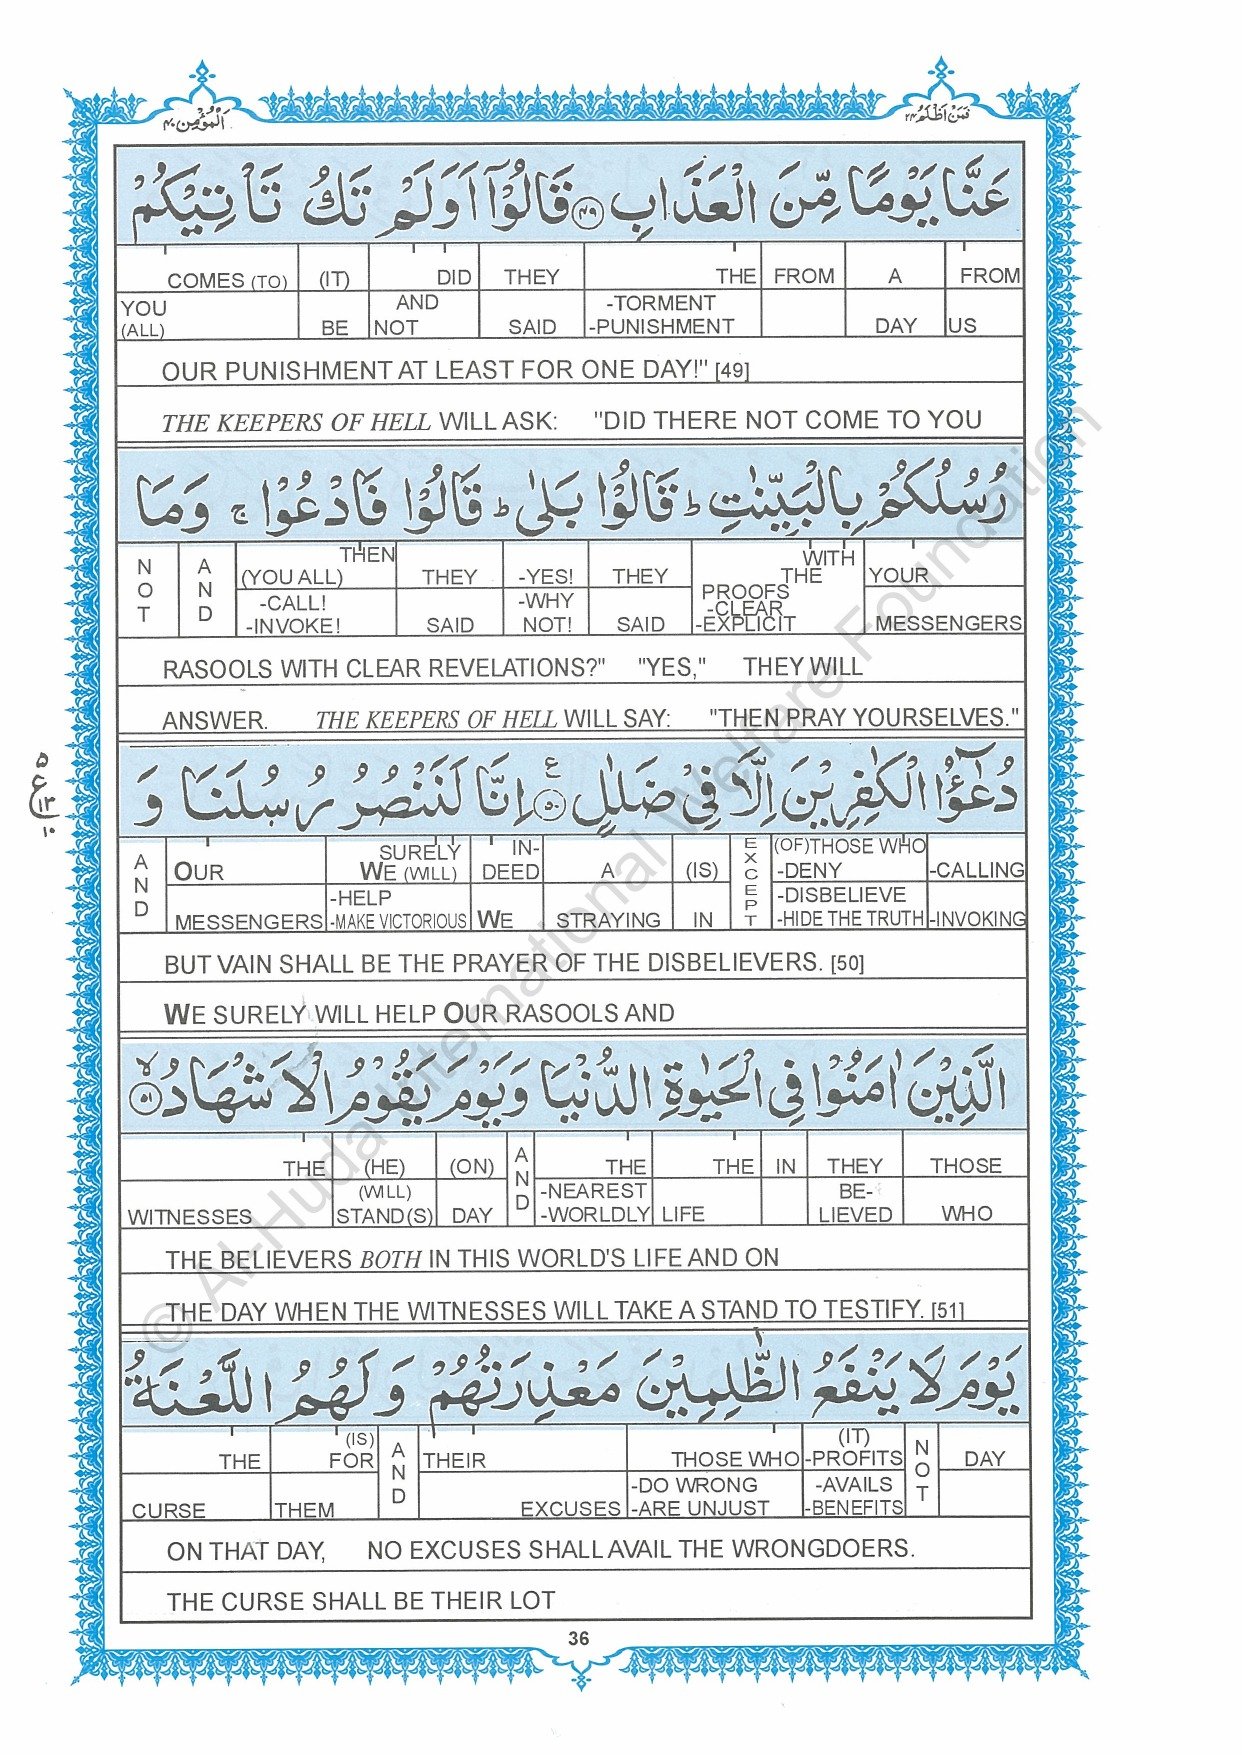 اَلْمُؤْمِن ٤٠
فَمَنْ اَظْلَمُ ٢٤
عَنَّا يَوْمًا مِّنَ الْعَذَابِ ﴿٤٩﴾ قَالُوْٓا اَوَلَمْ تَكُ تَاْتِيْكُمْ
COMES (TO) (IT) DID THEY THE FROM A FROM
YOU (ALL) BE AND NOT SAID -TORMENT -PUNISHMENT DAY US
OUR PUNISHMENT AT LEAST FOR ONE DAY!" [49]
THE KEEPERS OF HELL WILL ASK: "DID THERE NOT COME TO YOU
رُسُلُكُمْ بِالْبَيِّنٰتِ ؕ قَالُوْا بَلٰى ؕ قَالُوْا فَادْعُوْا ۚ وَمَا
NOT AND THEN (YOU ALL) THEY -YES! THEY WITH THE YOUR
-CALL! -INVOKE! SAID -WHY NOT! SAID PROOFS -CLEAR -EXPLICIT MESSENGERS
RASOOLS WITH CLEAR REVELATIONS?" "YES," THEY WILL
ANSWER. THE KEEPERS OF HELL WILL SAY: "THEN PRAY YOURSELVES."
دُعٰٓؤُا الْكٰفِرِيْنَ اِلَّا فِيْ ضَلٰلٍ ﴿٥٠﴾ ع اِنَّا لَنَنْصُرُ رُسُلَنَا وَ
٥
ع
١٣
١٠
AND OUR SURELY WE (WILL) IN-DEED A (IS) EXCEPT (OF)THOSE WHO -DENY -CALLING
MESSENGERS -HELP -MAKE VICTORIOUS WE STRAYING IN -DISBELIEVE -HIDE THE TRUTH -INVOKING
BUT VAIN SHALL BE THE PRAYER OF THE DISBELIEVERS. [50]
WE SURELY WILL HELP OUR RASOOLS AND
الَّذِيْنَ اٰمَنُوْا فِي الْحَيٰوةِ الدُّنْيَا وَيَوْمَ يَقُوْمُ الْاَشْهَادُ ﴿٥١﴾ ۙ
THE (HE) (ON) AND THE THE IN THEY THOSE
WITNESSES (WILL) STAND(S) DAY -NEAREST -WORLDLY LIFE BE-LIEVED WHO
THE BELIEVERS BOTH IN THIS WORLD'S LIFE AND ON
THE DAY WHEN THE WITNESSES WILL TAKE A STAND TO TESTIFY. [51]
يَوْمَ لَا يَنْفَعُ الظّٰلِمِيْنَ مَعْذِرَتُهُمْ وَلَهُمُ اللَّعْنَةُ
THE (IS) FOR AND THEIR THOSE WHO (IT) -PROFITS NOT DAY
CURSE THEM EXCUSES -DO WRONG -ARE UNJUST -AVAILS -BENEFITS
ON THAT DAY, NO EXCUSES SHALL AVAIL THE WRONGDOERS.
THE CURSE SHALL BE THEIR LOT
36
© Al-Huda International Welfare Foundation